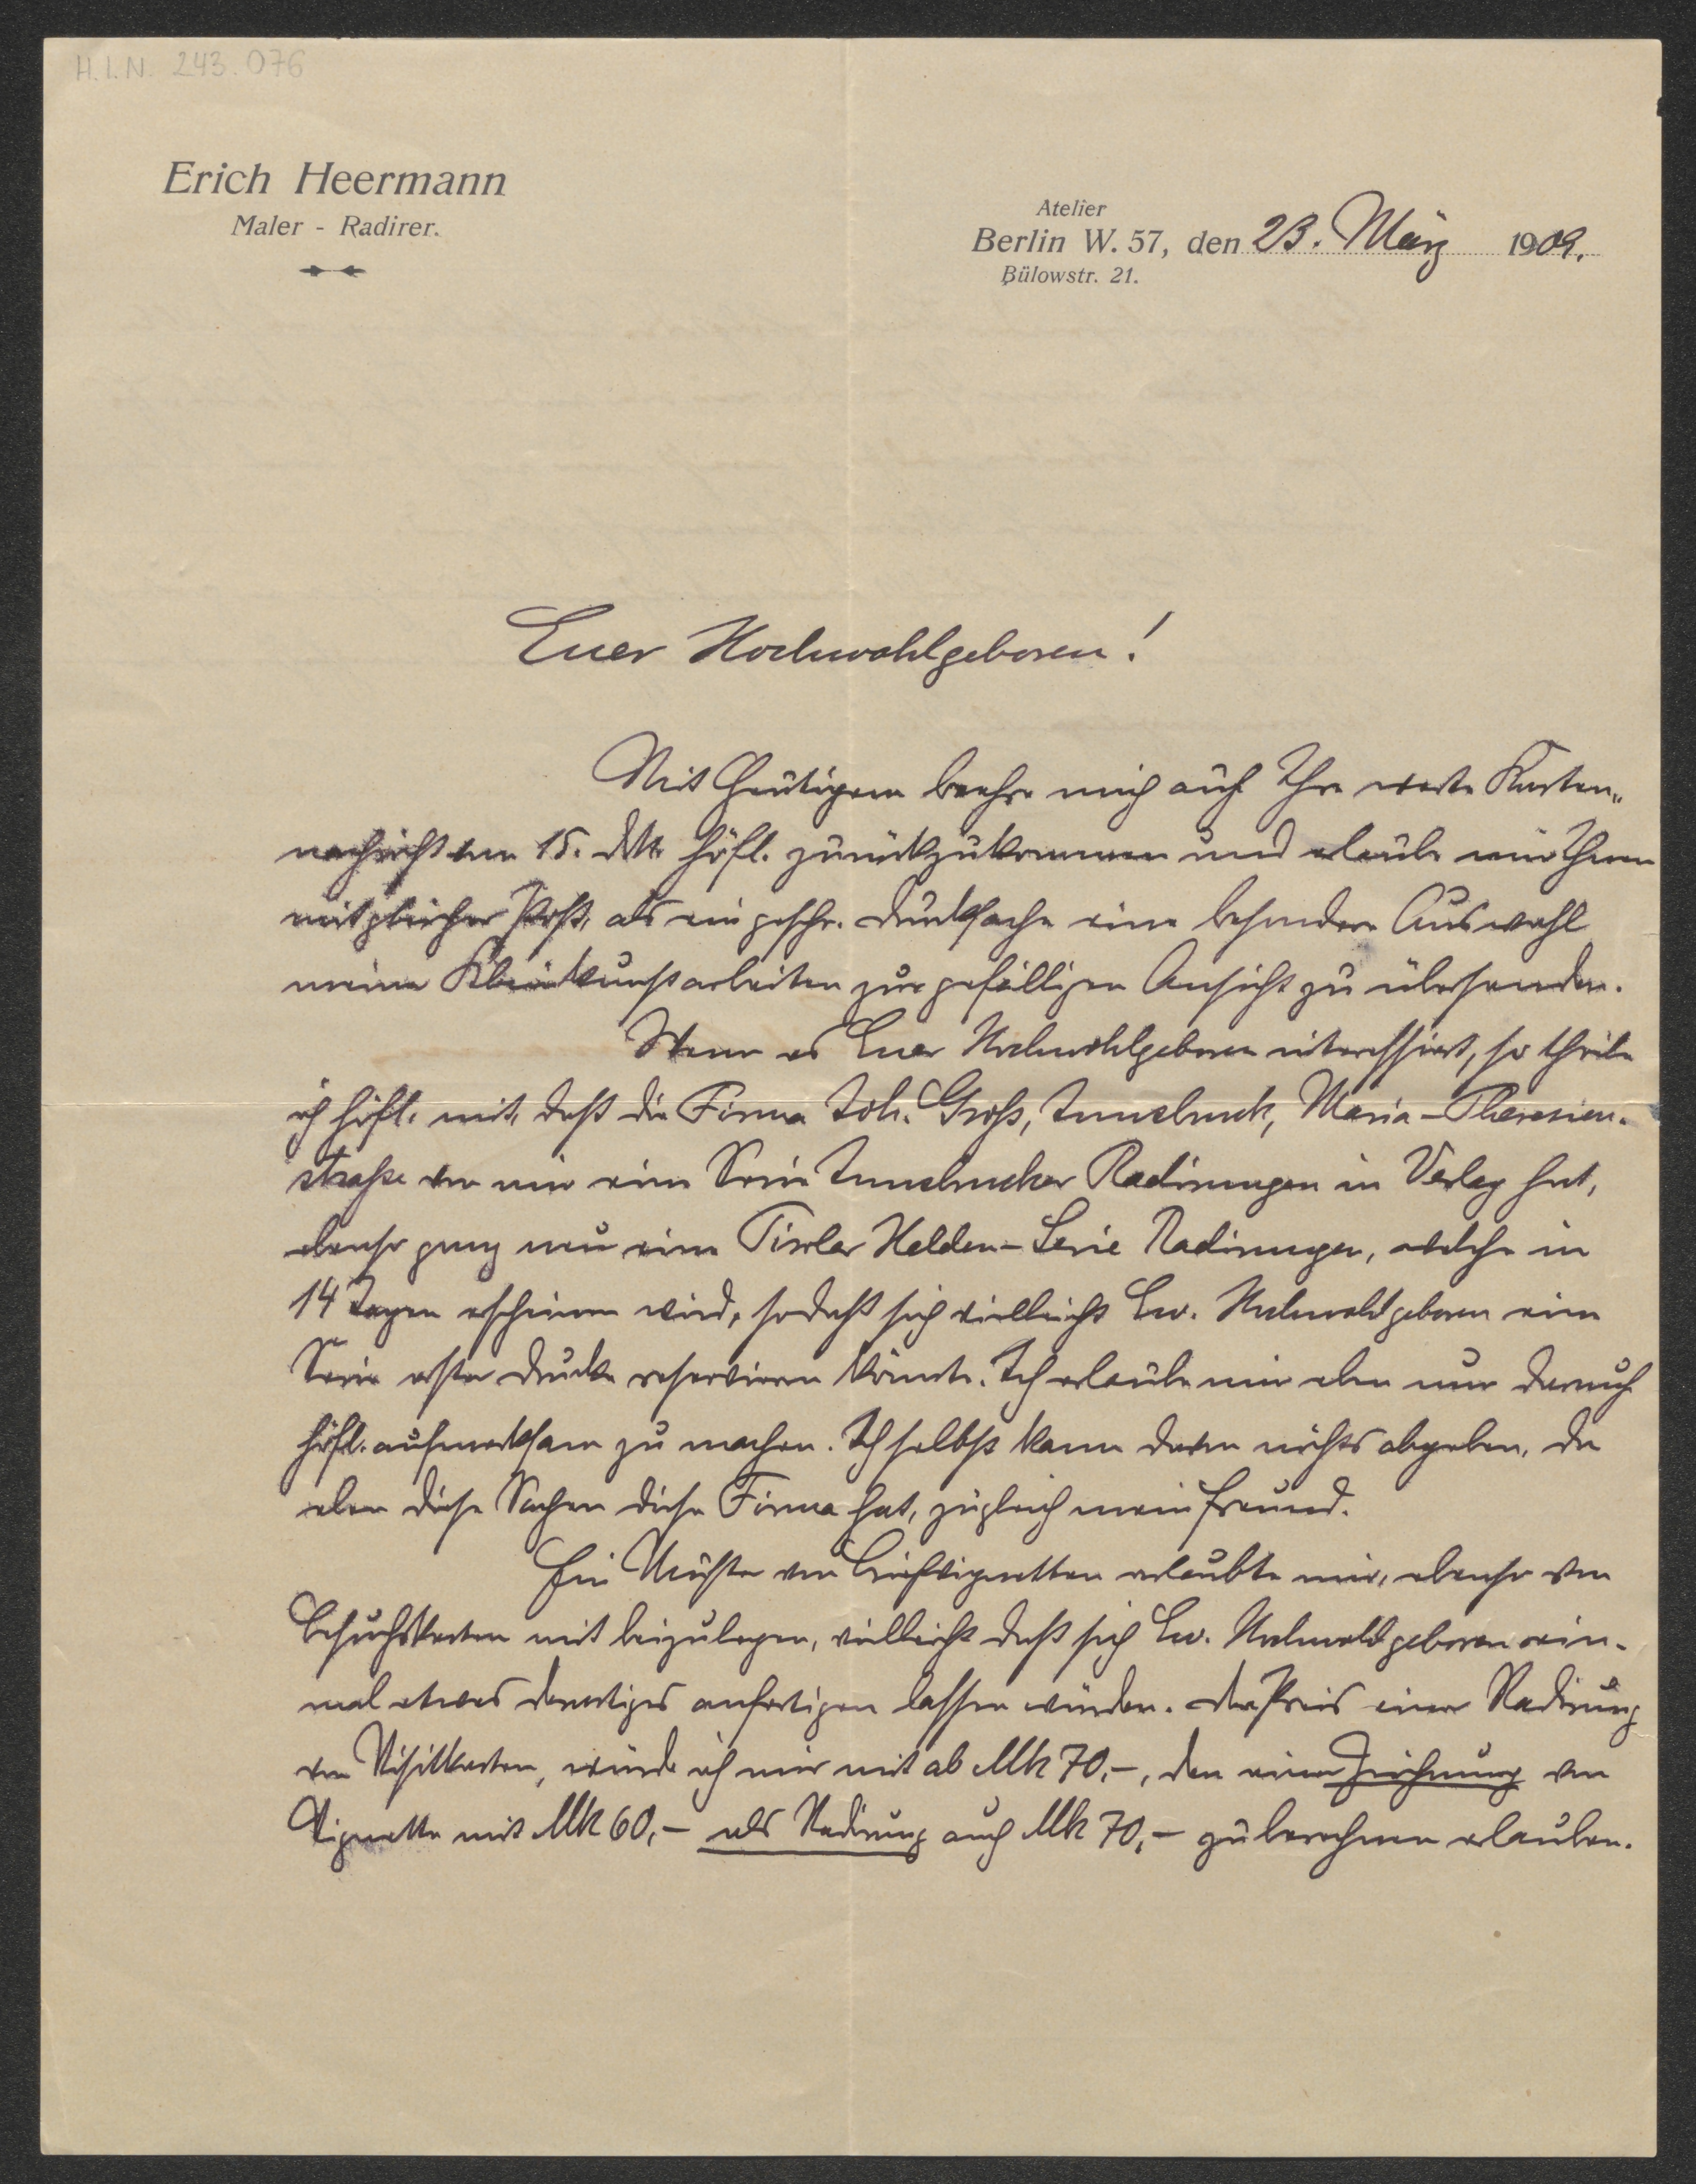 H.I.N. 243.076
Erich Heermann
Maler - Radirer.
Atelier
Berlin W. 57, den 23. März 1909.
Bülowstr. 21.
Euer Hochwohlgeboren!
Mit Heutigem beehre mich auf Ihre werte Karten„
nachricht vom 15. höfl. zurückzukommen und erlaube mir Ihnen
mit gleicher Post, als eingeschr. Drucksache eine besondere Auswahl
meiner Kleinkunstarbeiten zur gefälligen Ansicht zu übersenden.
Wenn es Euer Hochwohlgeboren interessirt, so theile
ich höfl. mit, daß die Firma Joh. Groß, Innsbruck, Maria-Theresien-
straße von mir eine Serie Innsbrucker Radirungen in Verlag hat,
ebenso ganz neu eine Tiroler Helden-Serie Radirungen, welche in
14 Tagen erscheinen wird, sodaß sich vielleicht Ew. Hochwohlgeboren eine
Serie erster Drucke reserviren könnte. Ich erlaube mir eben nur darauf
höfl. aufmerksam zu machen. Ich selbst kann davon nichts abgeben, da
eben diese Sachen diese Firma hat, zugleich mein Freund.
Ein Muster von Briefvignetten erlaubte mir, ebenso von
Besuchskarten mit beizulegen, vielleicht daß sich Ew. Hochwohlgeboren ein-
mal etwas derartiges anfertigen lassen würden. Der Preis einer Radirung
von Visitkarten, würde ich mir mit ab Mk 70,-, den einer Zeichnung von
Vignette mit Mk 60,- als Radirung auch Mk 70,- zu berechnen erlauben.